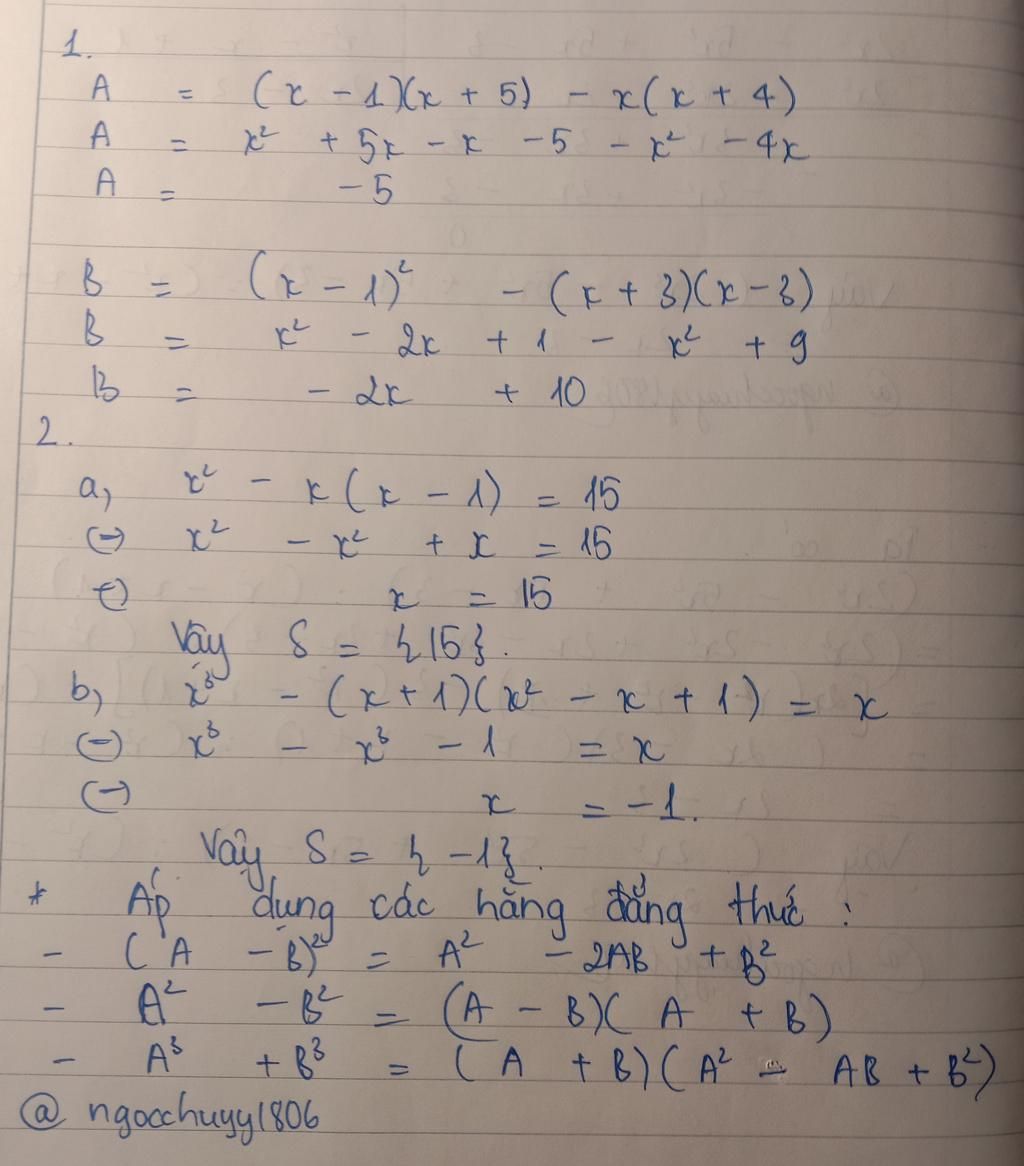 1.
A = (x - 1)(x + 5) - x(x + 4)
A = x² + 5x - x - 5 - x² - 4x
A = - 5
B = (x - 1)² - (x + 3)(x - 3)
B = x² - 2x + 1 - x² + 9
B = - 2x + 10
2.
a, x² - x(x - 1) = 15
(-) x² - x² + x = 15
(-) x = 15
Vậy S = {15}.
b, x³ - (x + 1)(x² - x + 1) = x
(-) x³ - x³ - 1 = x
(-) x = -1.
Vậy S = {-1}.
* Áp dụng các hằng đẳng thức :
- (A - B)² = A² - 2AB + B²
- A² - B² = (A - B)(A + B)
- A³ + B³ = (A + B)(A² - AB + B²)
@ ngocchuyy1806